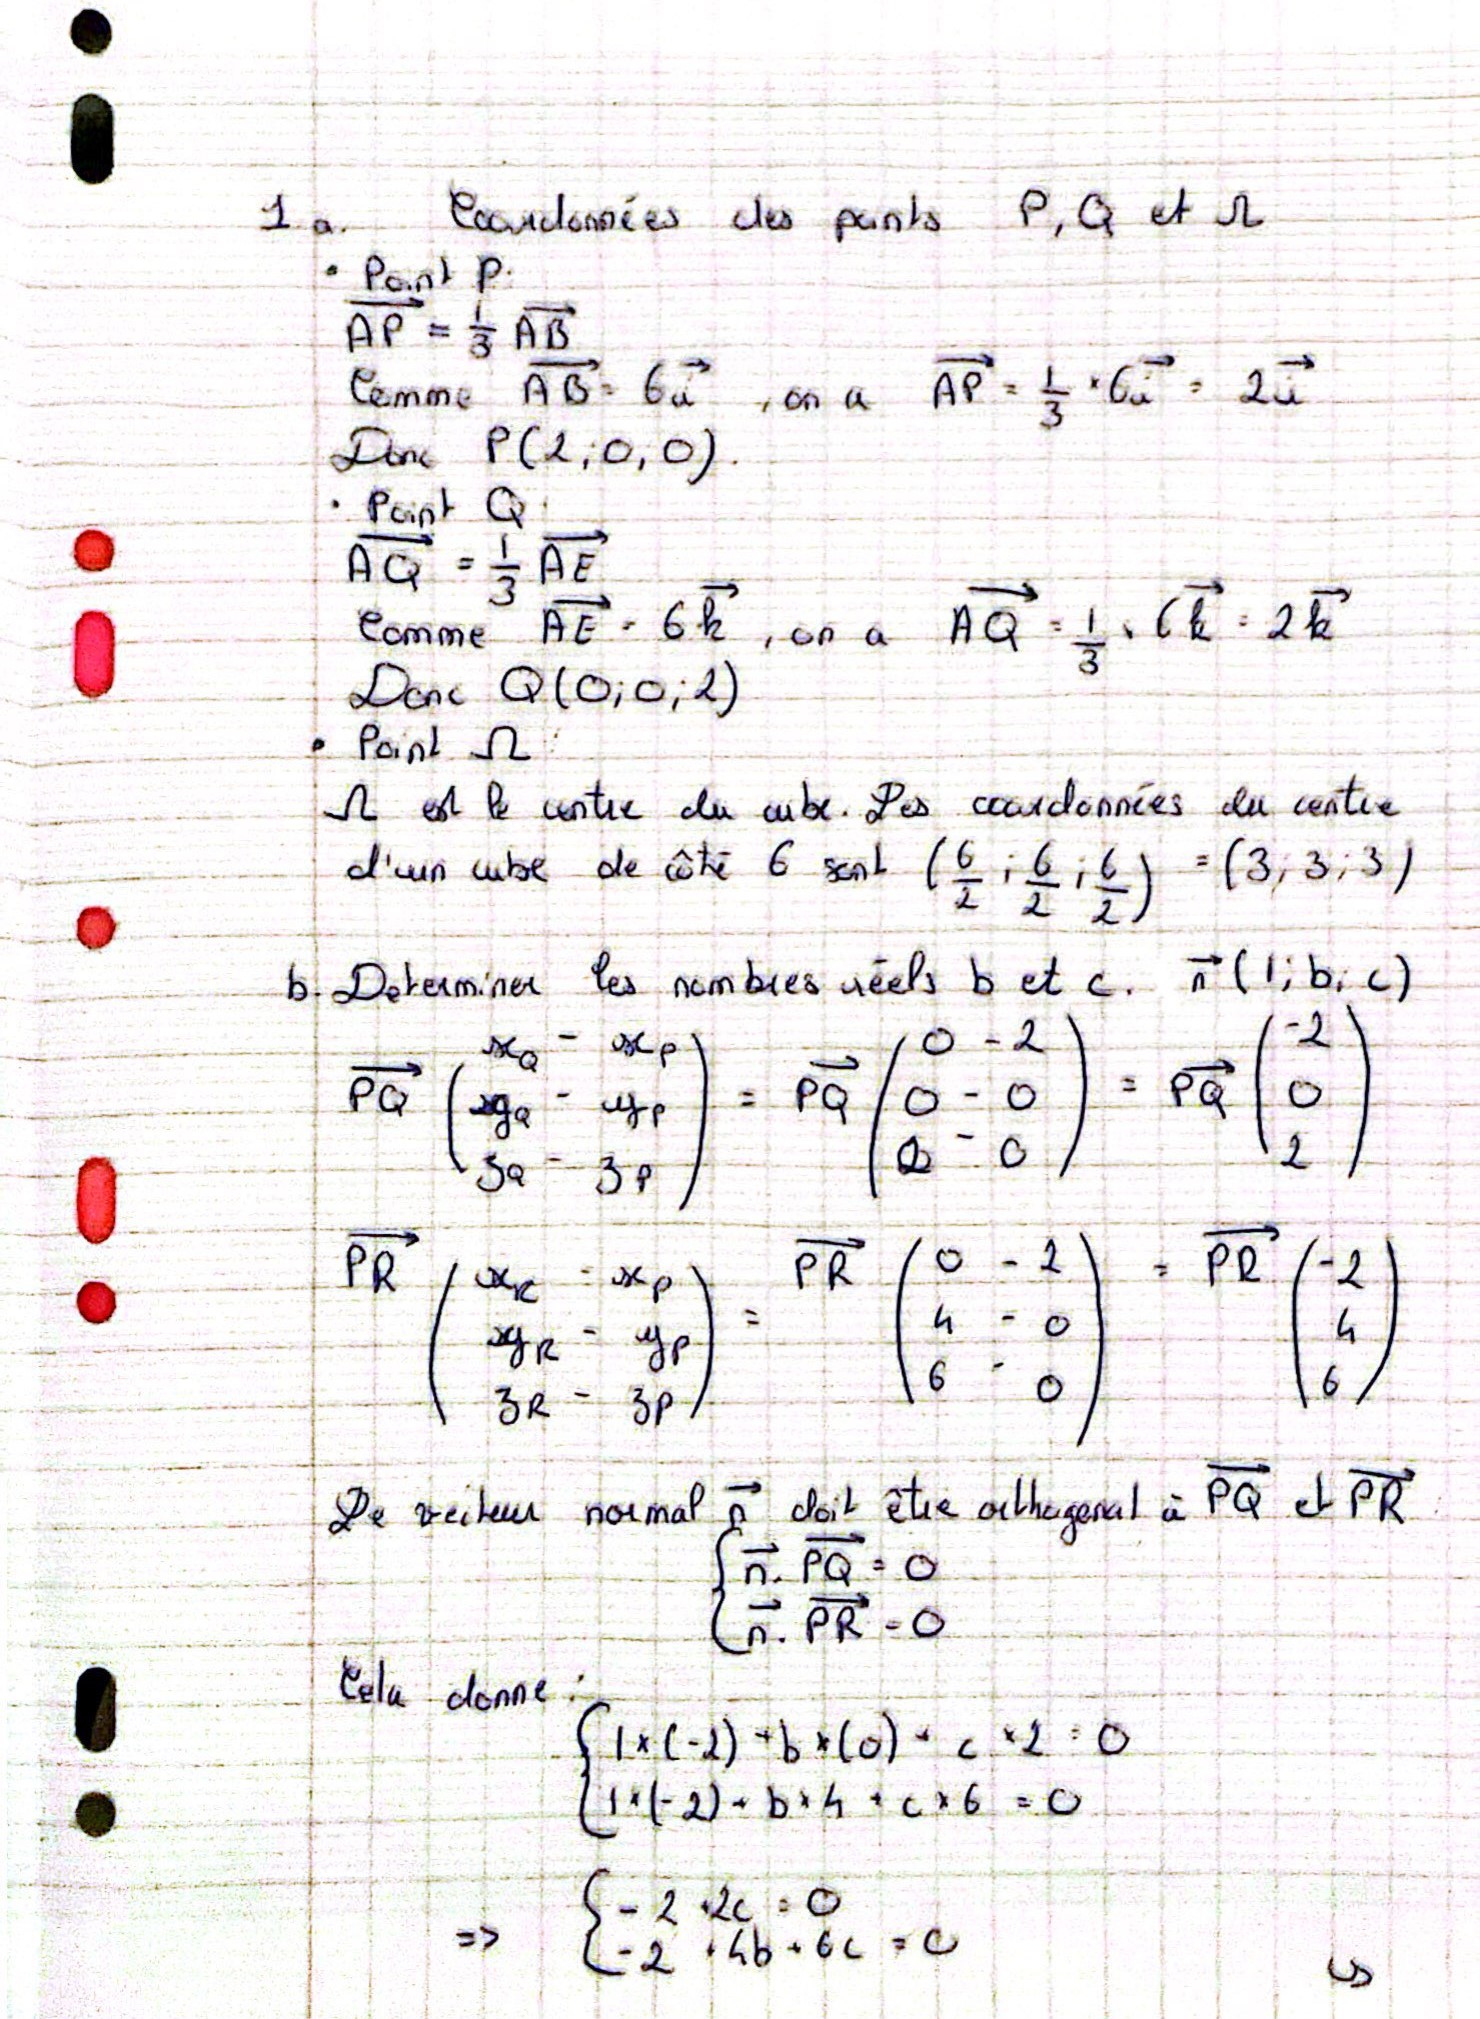 1 a. Coordonnées des points P, Q et Ω
• Point P:
AP⃗ = 1/3 AB⃗
Comme AB⃗ = 6i⃗, on a AP⃗ = 1/3 × 6i⃗ = 2i⃗
Donc P(2;0,0).
• Point Q:
AQ⃗ = 1/3 AE⃗
Comme AE⃗ = 6k⃗, on a AQ⃗ = 1/3 × 6k⃗ = 2k⃗
Donc Q(0;0;2)
• Point Ω:
Ω est le centre du cube. Les coordonnées du centre
d'un cube de côté 6 sont (6/2; 6/2; 6/2) = (3; 3; 3)
b. Determiner les nombres réels b et c. n⃗ (1; b; c)
PQ⃗ (xQ - xP, yQ - yP, zQ - zP) = PQ⃗ (0 - 2, 0 - 0, 2 - 0) = PQ⃗ (-2, 0, 2)
PR⃗ (xR - xP, yR - yP, zR - zP) = PR⃗ (0 - 2, 4 - 0, 6 - 0) = PR⃗ (-2, 4, 6)
Le vecteur normal n⃗ doit être orthogonal à PQ⃗ et PR⃗:
{ n⃗. PQ⃗ = 0
n⃗. PR⃗ = 0
Cela donne:
{ 1×(-2) + b×(0) + c×2 = 0
1×(-2) + b×4 + c×6 = 0
=> { -2 + 2c = 0
-2 + 4b + 6c = 0
↪